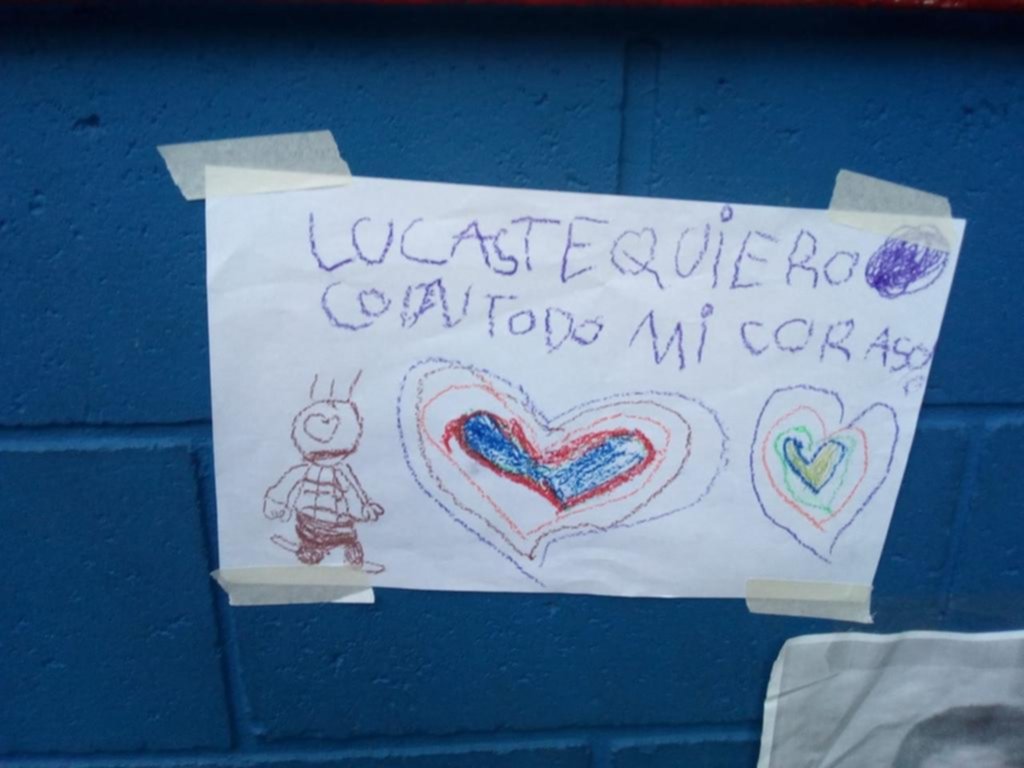 LUCAS TE QUIERO
CON TODO MI CORASO